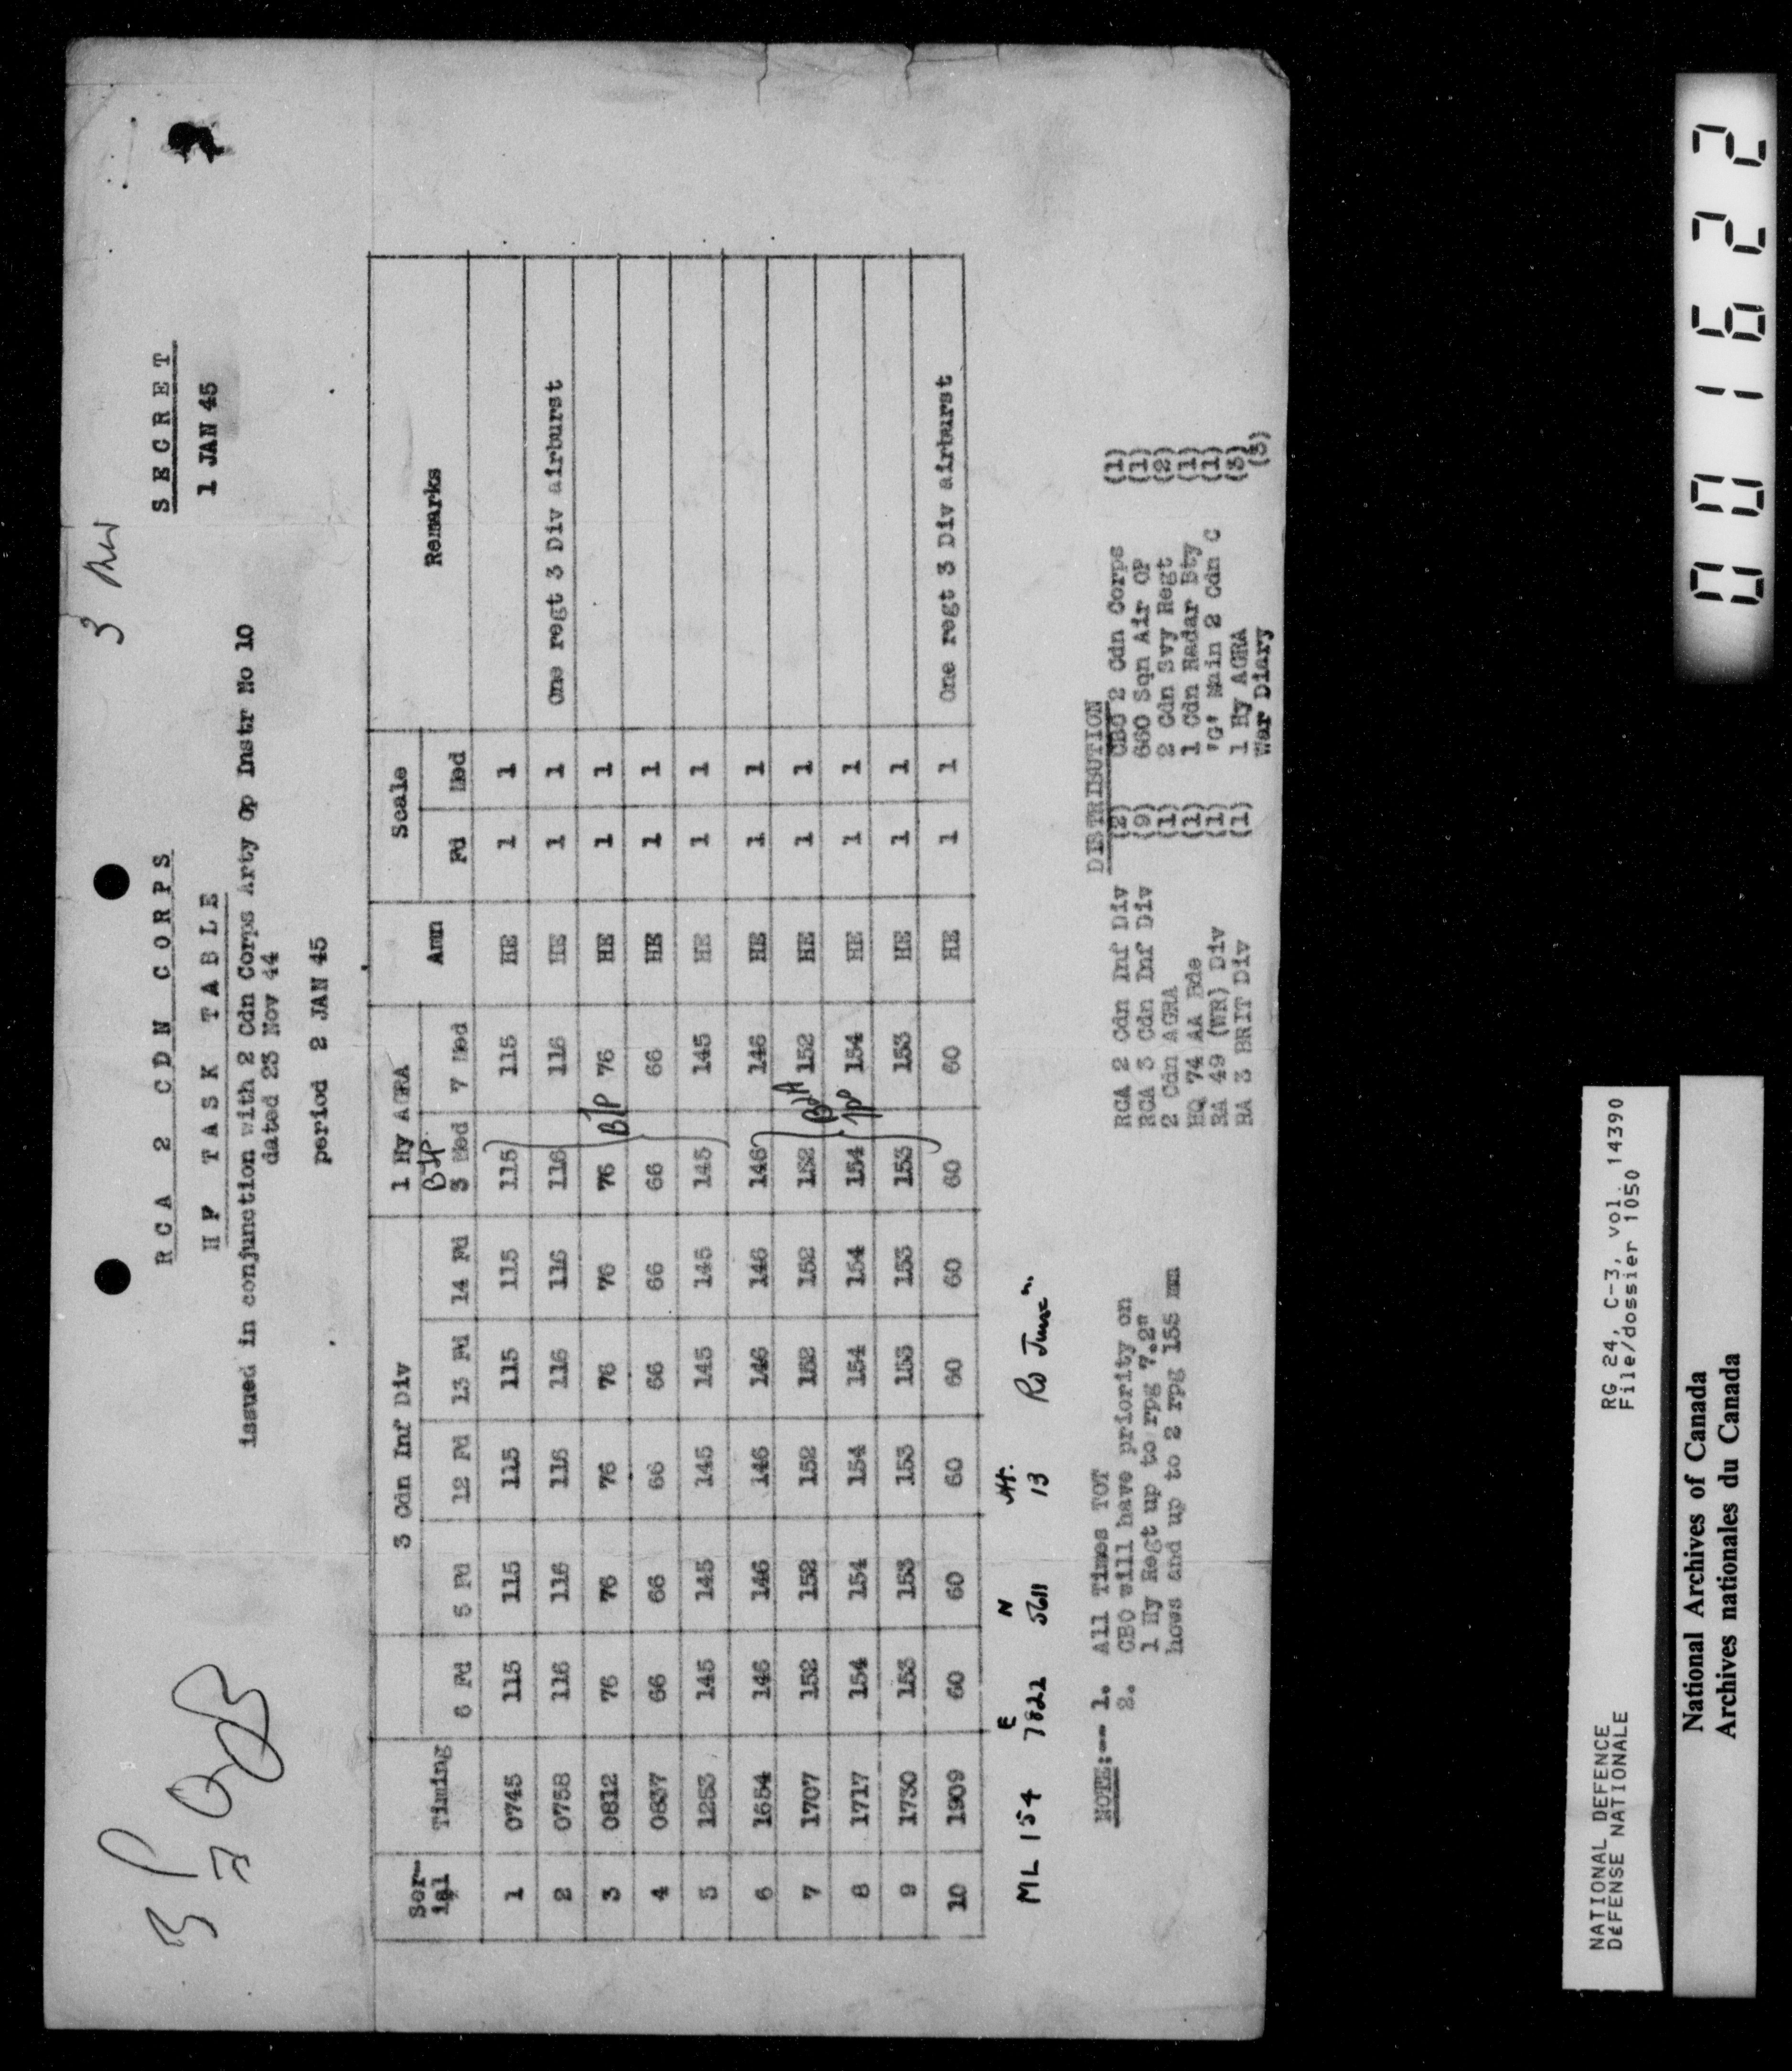 3
SECRET
1 JAN 45
RCA 2 CDN CORPS
HF TASK TABLE
issued in conjunction with 2 Cdn Corps Arty Op Instr No 10
dated 23 Nov 44
period 2 JAN 45
3 Cdn Inf Div 1 Hy AGRA Scale
Ser- Timing 6 Fd 5 Fd 12 Fd 13 Fd 14 Fd 3 Med 7 Med Amn Fd Med Remarks
ial
1 0745 115 115 115 115 115 115 115 HE 1 1
2 0758 116 116 116 116 116 116 116 HE 1 1 One regt 3 Div airburst
3 0812 76 76 76 76 76 76 76 HE 1 1
4 0837 66 66 66 66 66 66 66 HE 1 1
5 1253 145 145 145 145 145 145 145 HE 1 1
6 1654 146 146 146 146 146 146 146 HE 1 1
7 1707 152 152 152 152 152 152 152 HE 1 1
8 1717 154 154 154 154 154 154 154 HE 1 1
9 1730 153 153 153 153 153 153 153 HE 1 1
10 1909 60 60 60 60 60 60 60 HE 1 1 One regt 3 Div airburst
E N Ht.
ML 154 7822 5611 13
NOTE:-- 1. All Times TOT
2. CBO will have priority on
1 Hy Regt up to rpg 7.2"
hows and up to 2 rpg 155 mm
DISTRIBUTION
RCA 2 Cdn Inf Div (2) CBO 2 Cdn Corps (1)
RCA 3 Cdn Inf Div (9) 660 Sqn Air OP (1)
2 Cdn AGRA (1) 2 Cdn Svy Regt (2)
HQ 74 AA Bde (1) 1 Cdn Radar Bty (1)
RA 49 (WR) Div (1) 'G' Main 2 Cdn C (1)
RA 3 BRIT Div (1) 1 Hy AGRA (3)
War Diary (3)
NATIONAL DEFENCE RG 24, C-3, vol. 14390
DÉFENSE NATIONALE File/dossier 1050
National Archives of Canada
Archives nationales du Canada
001622